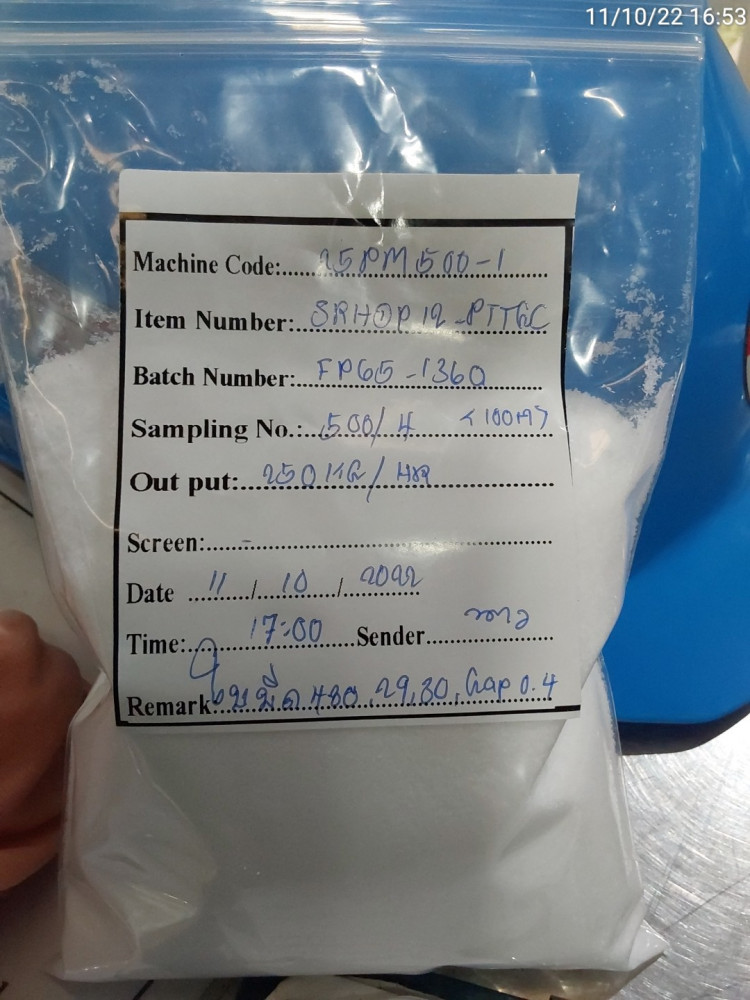 11/10/22 16:53
Machine Code:......25PM500-1......
Item Number:..SRHDP12-PTTGC
Batch Number:..FP65-1360......
Sampling No.:..500/4 <100M>
Out put:..250KG/HR......
Screen:......-......
Date ...11.../...10.../...2022...
Time:......17:00...Sender......
Remark:..ใบมีด 480, 29,30, Gap 0.4